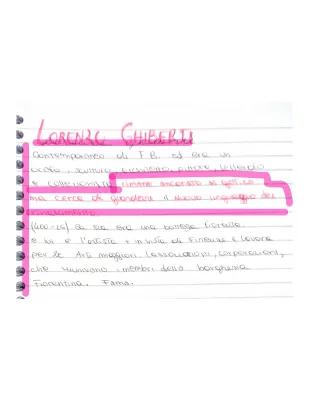 LORENZO GHIBERTI
Contemporaneo di F.B. ed era un
orafo, scultore, architetto, pittore, letterato
e collezionista rimane ancorato al gotico
ma cerca di prendere il nuovo linguaggio del
rinascimento.
la sua era una bottega
è l'artista + in vista di Firenze e lavora
per le Arti maggiori (associazioni, corporazioni,
che riunivano i membri della borghesia
Fiorentina. Fama.